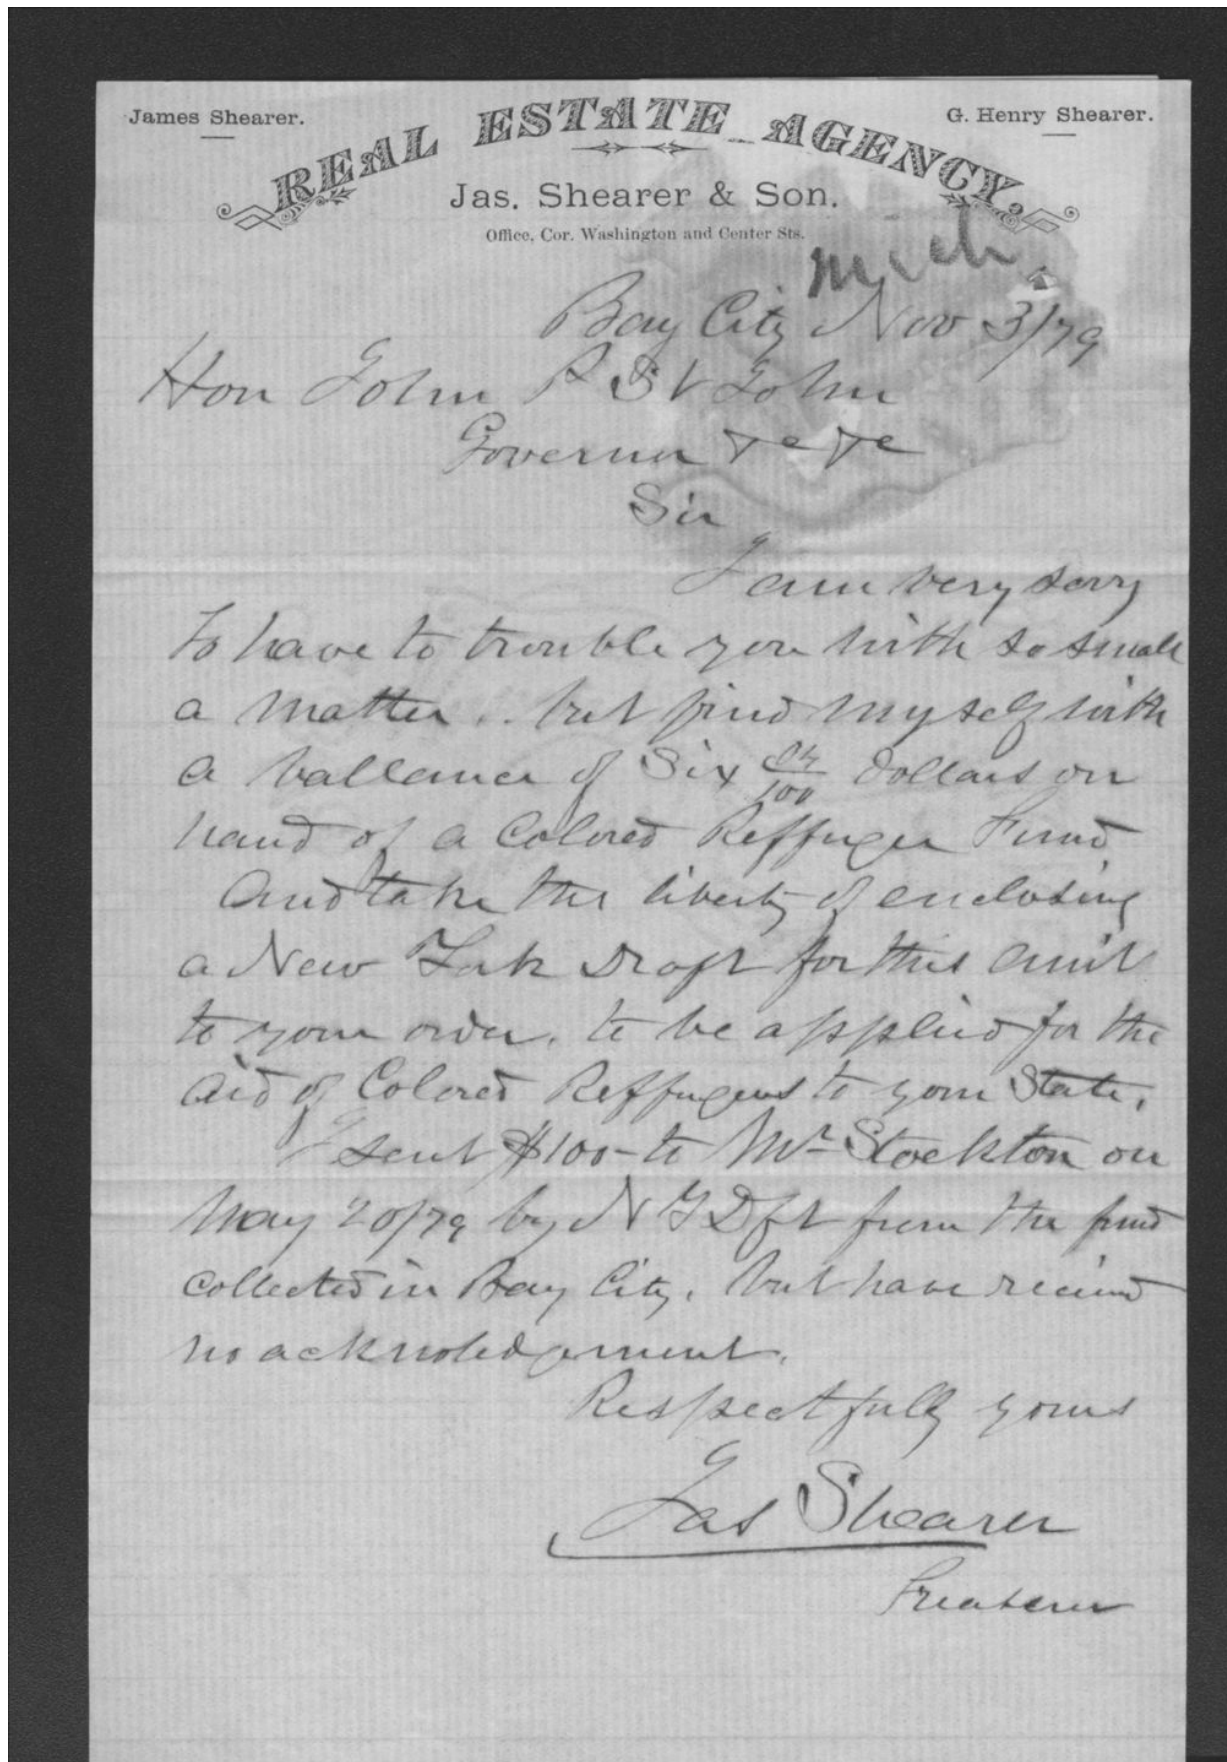 James Shearer.
G. Henry Shearer.
REAL ESTATE AGENCY,
Jas. Shearer & Son.
Office, Cor. Washington and Center Sts.
Mich.
Bay City Nov 3/79
Hon John P St John
Governor &c &c
Sir
I am very sorry
to have to trouble you with so small
a matter.. but find myself with
a ballance of Six /100 dollars on
hand of a Colored Reffugee Fund
And take the liberty of enclosing
a New York Draft for this Am't
to your order. to be applied for the
aid of Colored Reffugees to your State.
I sent $100- to Mr Stockton on
May 20/79 by N Y Dft from the fund
collected in Bay City. but have recieved
no acknoledgement.
Respectfully yours
Jas Shearer
Treasurer